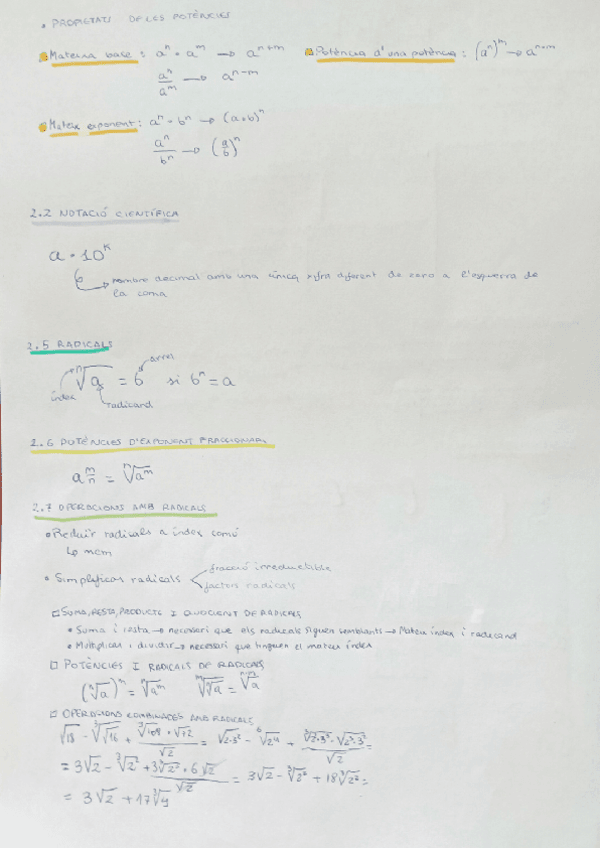 • PROPIETATS DE LES POTÈNCIES
• Mateixa base : aⁿ · aᵐ → aⁿ⁺ᵐ
aⁿ/aᵐ → aⁿ⁻ᵐ
• Potència d'una potència : (aⁿ)ᵐ → aⁿ·ᵐ
• Mateix exponent : aⁿ · bⁿ → (a·b)ⁿ
aⁿ/bⁿ → (a/b)ⁿ
2.2 NOTACIÓ CIENTÍFICA
a · 10ᴷ
nombre decimal amb una única xifra diferent de zero a l'esquerra de
la coma
2.5 RADICALS
arrel
ⁿ√a = b si bⁿ = a
índex
radicand
2.6 POTÈNCIES D'EXPONENT FRACCIONARI
a^(m/n) = ⁿ√aᵐ
2.7 OPERACIONS AMB RADICALS
• Reduir radicals a índex comú
↳ mcm
• Simplificar radicals
fracció irreductible
factors radicals
□ SUMA, RESTA, PRODUCTE I QUOCIENT DE RADICALS
• Suma i resta → necessari que els radicals siguen semblants → Mateix índex i radicand
• Multiplicar i dividir → necessari que tinguen el mateix índex
□ POTÈNCIES I RADICALS DE RADICALS
(ⁿ√a)ᵐ = ⁿ√aᵐ ᵐ√ⁿ√a = ⁿ·ᵐ√a
□ OPERACIONS COMBINADES AMB RADICALS
√18 - ³√√16 + (³√108 · √72)/√2 = √2·3² - ⁶√2⁴ + (³√2²·3³ · √2³·3²)/√2 =
= 3√2 - ³√2² + (3³√2² · 6√2)/√2 = 3√2 - ³√2² + 18³√2² =
= 3√2 + 17³√4